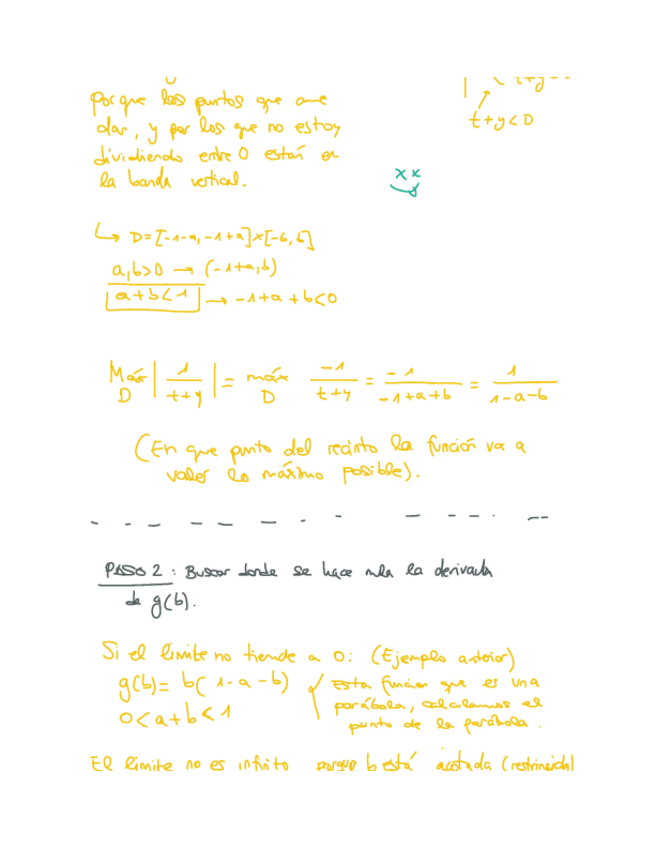 t+y<0
porque los puntos que me
dan, y por los que no estoy
dividiendo entre 0 están en
la banda vertical.
xx
↳ D=[-1-a,-1+a]×[-b,b]
a,b>0 → (-1+a,b)
a+b<1 → -1+a+b<0
Máx | 1/(t+y) | = máx -1/(t+y) = -1/(-1+a+b) = 1/(1-a-b)
D D
(En que punto del recinto la función va a
valer lo máximo posible).
PASO 2: Buscar donde se hace nula la derivada
de g(b).
Si el límite no tiende a 0: (Ejemplo anterior)
g(b)= b(1-a-b) Esta función que es una
0<a+b<1 parábola, calculamos el
punto de la parábola.
El límite no es infinito porque b está acotada (restringida)